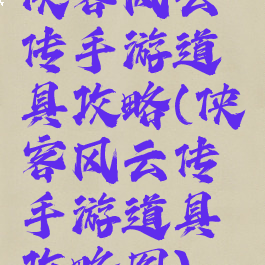 侠客风云
传手游道
具攻略(侠
客风云传
手游道具
攻略图)